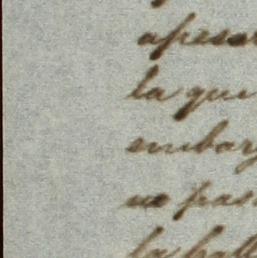 apesar
la que
embarg
no pas
la hall